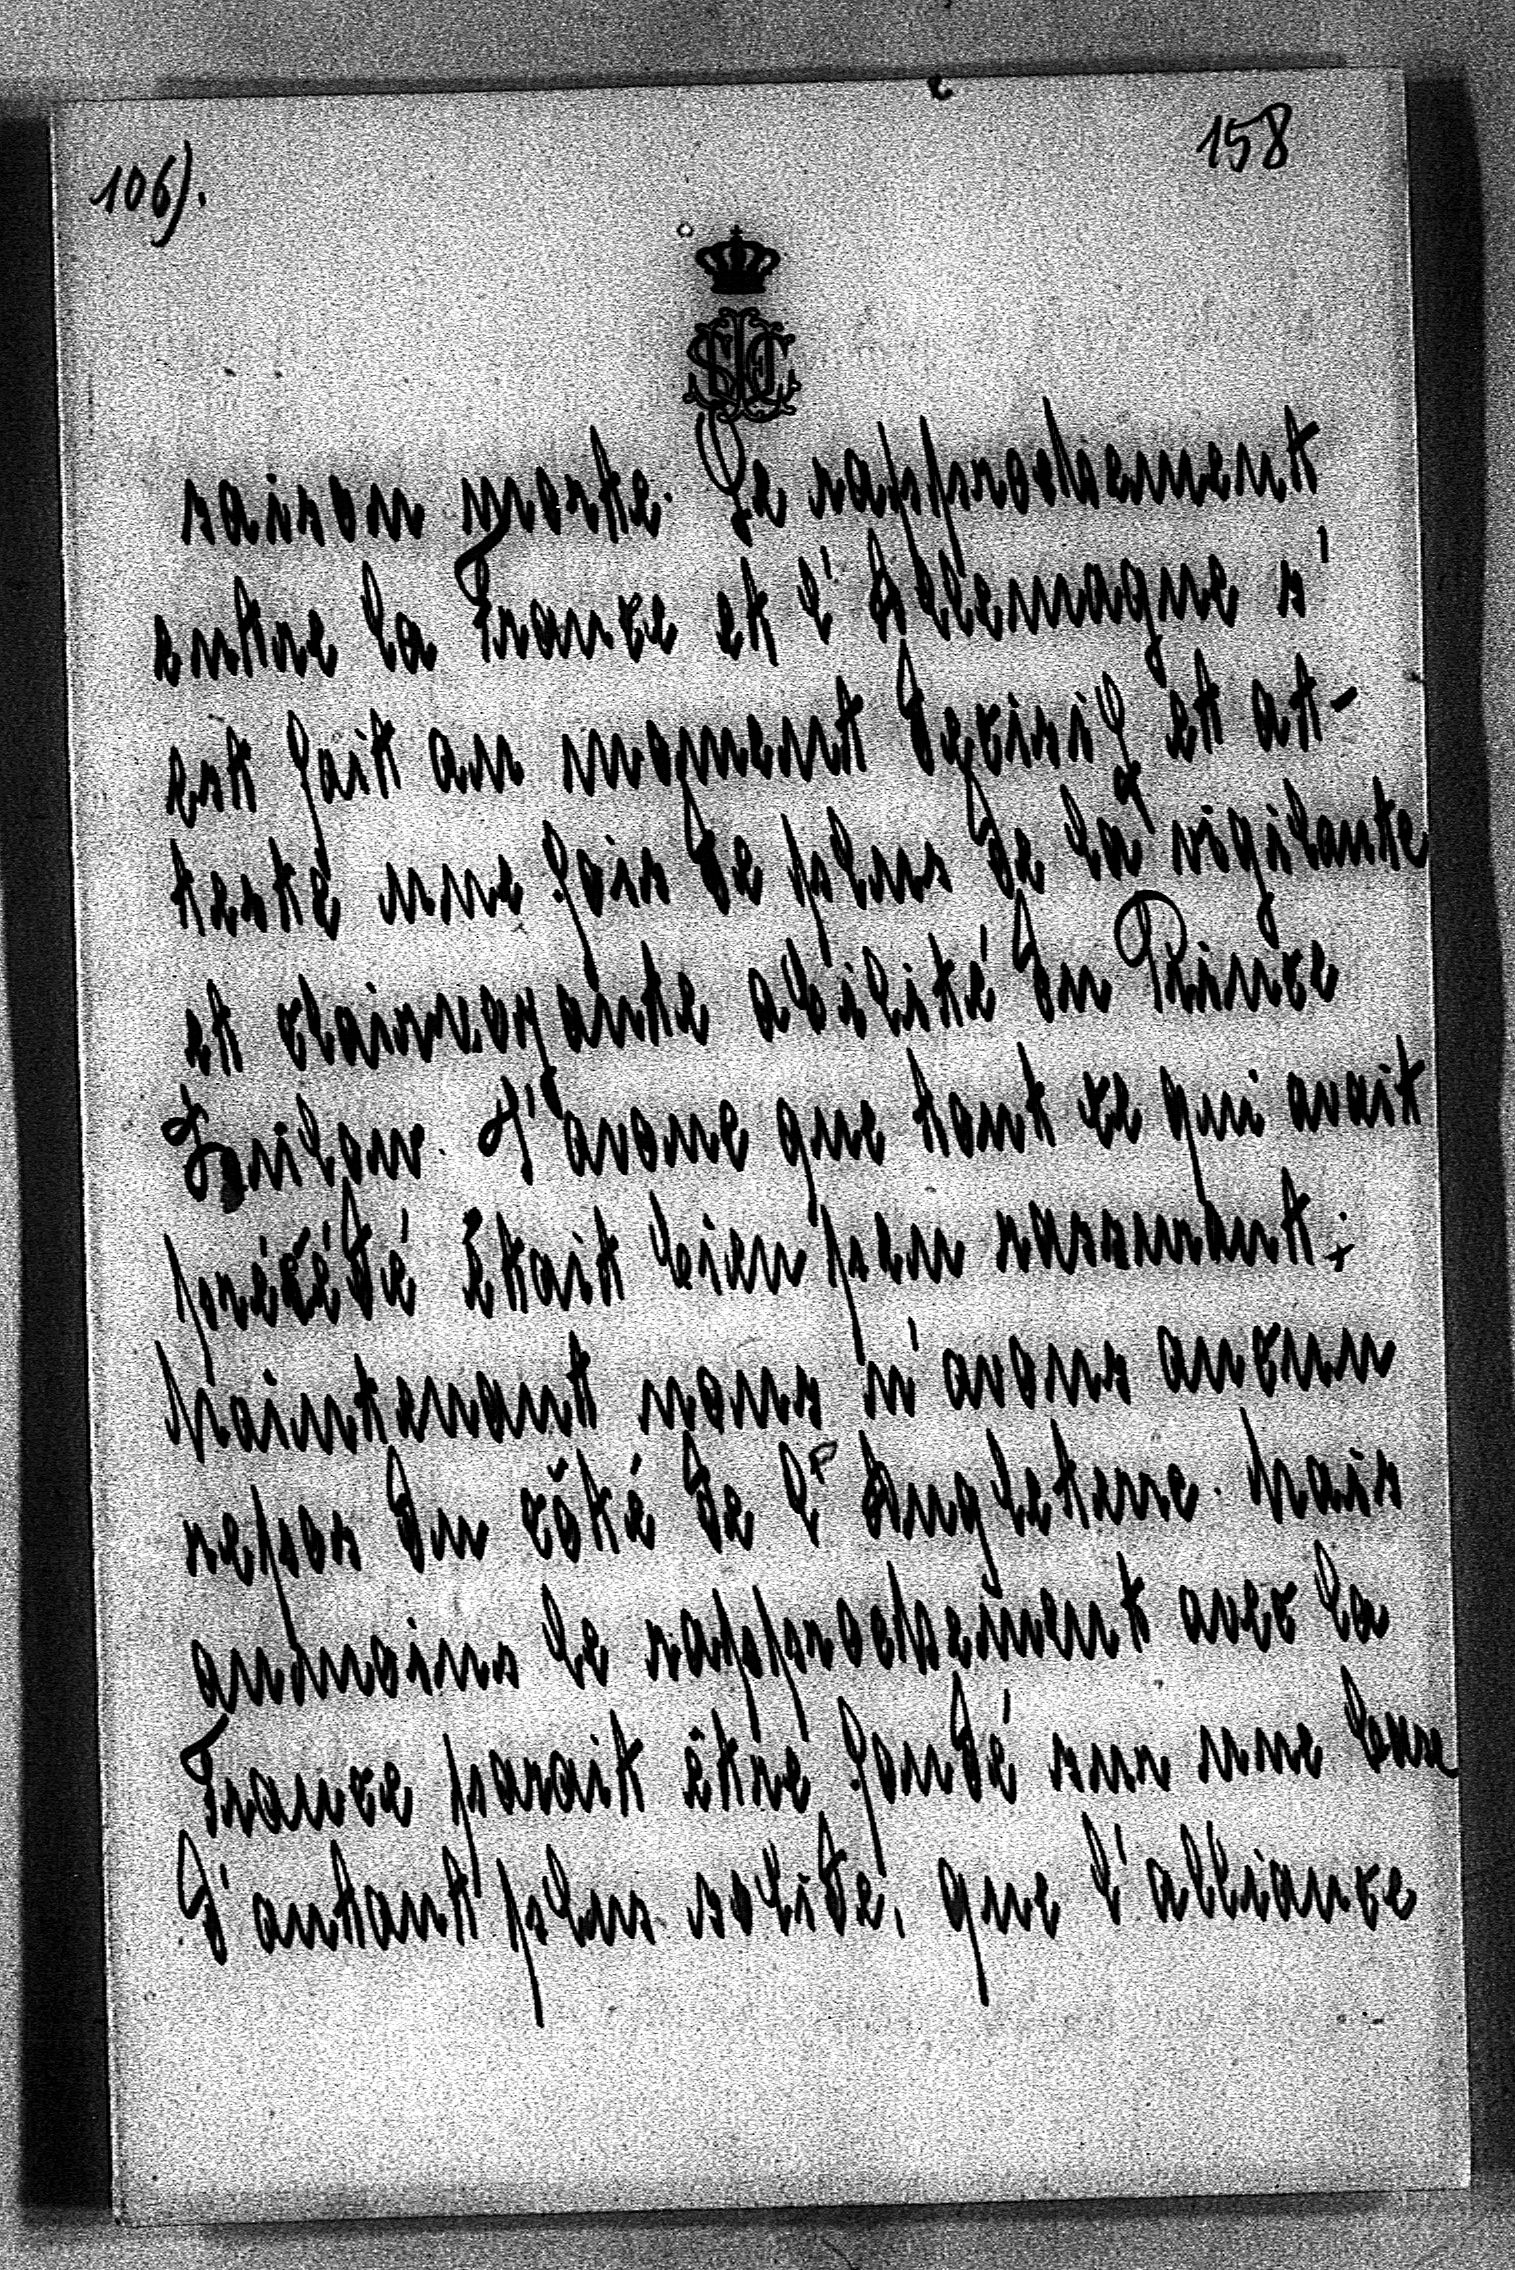 106).
158
saison morte. Le rapprochement
entre la France et l'Allemagne s'
est fait au moment decisif et at-
testé une fois de plus de la vigilante
et clairvoyante abilité du Prince
J'avoue que tout ce qui avait
précédé était bien peu rassurant;
Maintenant nous n'avons aucun
repos du côté de l'Angleterre. Mais
aumoins le rapprochement avec la
France parait être fondé sur une base
d'autant plus solide, que l'alliance